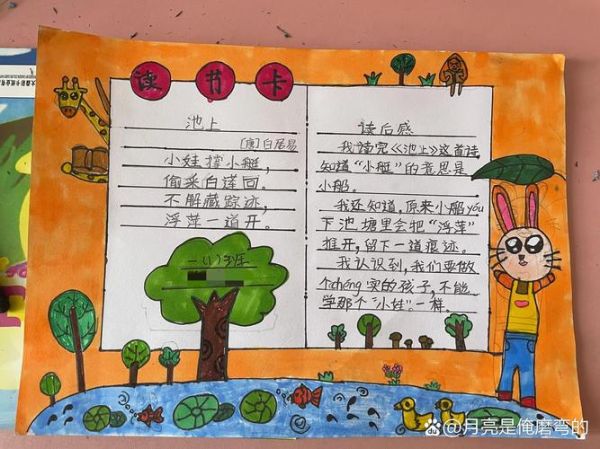 读书卡
池上
[唐]白居易
小娃撑小艇,
偷采白莲回。
不解藏踪迹,
浮萍一道开。
一(1)班
读后感
我读完《池上》这首诗,
知道“小艇”的意思是
小船。
我还知道,原来小船yóu
下池塘里会把“浮萍”
推开,留下一道痕迹。
我认识到,我们要做
个chéng实的孩子,不能
学那个“小娃”一样。
@月亮是俺磨弯的